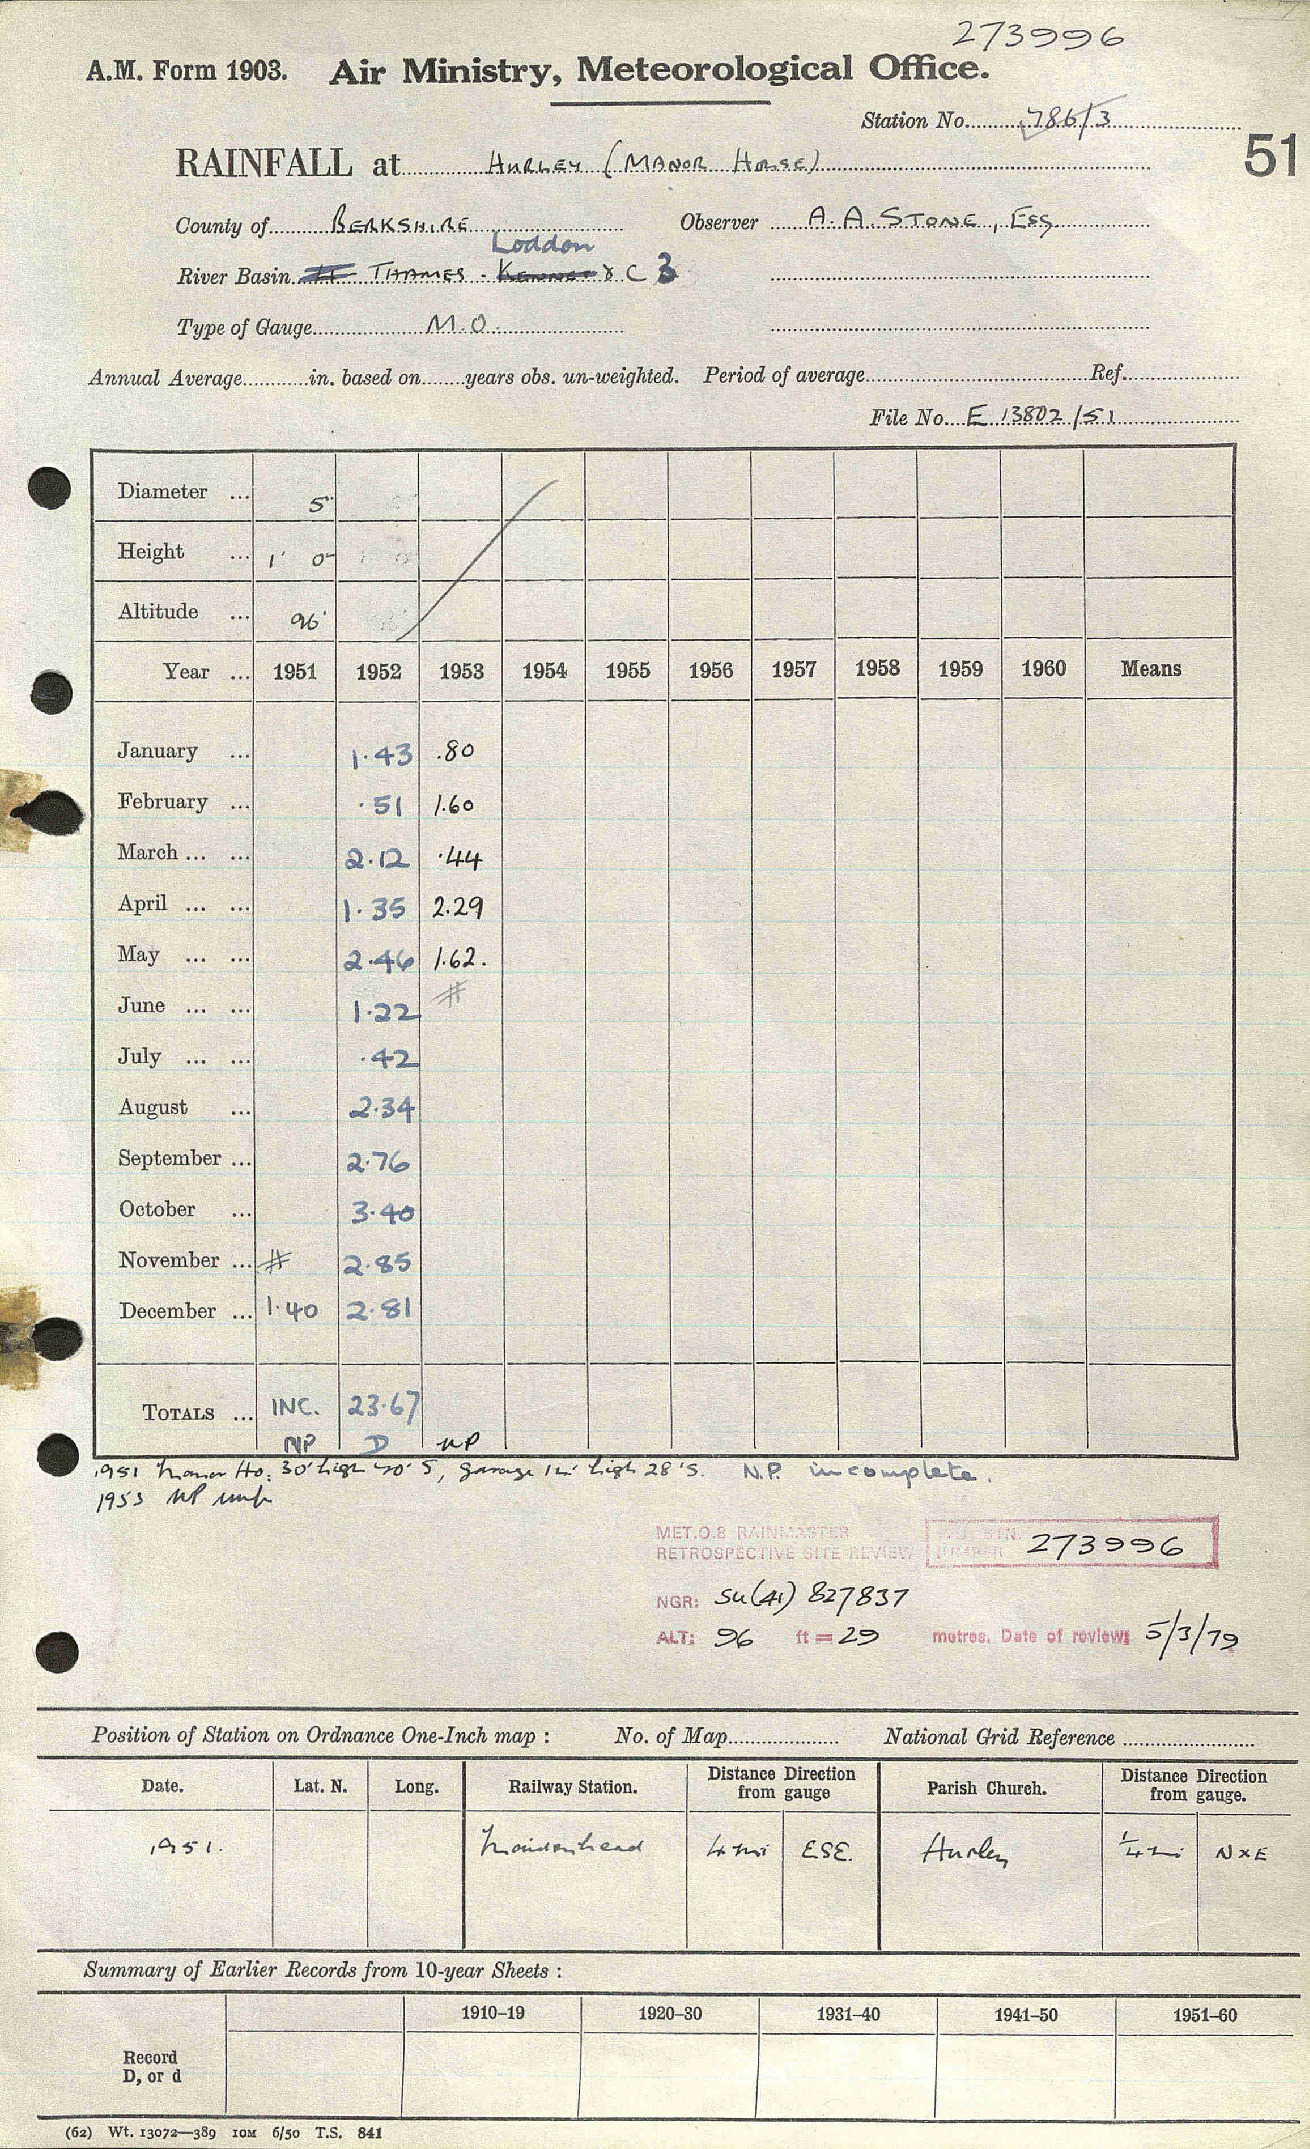 273996
A.M. Form 1903. Air Ministry, Meteorological Office.
Station No. 786/3
51
RAINFALL at HURLEY (MANOR HOUSE)
County of BERKSHIRE Observer A. A. STONE, ESQ
Loddon
River Basin THAMES - KENNET & C 3
Type of Gauge M.O.
Annual Average in. based on years obs. un-weighted. Period of average Ref.
File No. E 13802/51
Diameter ... 5"
Height ... 1' 0"
Altitude ... 96'
Year ... 1951 1952 1953 1954 1955 1956 1957 1958 1959 1960 Means
January ... 1.43 .80
February ... .51 1.60
March ... ... 2.12 .44
April ... ... 1.35 2.29
May ... ... 2.46 1.62.
June ... ... 1.22 #
July ... ... .42
August ... 2.34
September ... 2.76
October ... 3.40
November ... # 2.85
December ... 1.40 2.81
TOTALS ... INC. 23.67
NP D NP
1951 Manor Ho. 30' high 40' S, garage 12' high 28' S. N.P. incomplete.
1953 NP
MET.O.8 RAINMASTER
RETROSPECTIVE SITE REVIEW STN. NUMBER 273996
NGR: SU(41) 827837
ALT: 96 ft = 29 metres. Date of review: 5/3/79
Position of Station on Ordnance One-Inch map : No. of Map National Grid Reference
Date. Lat. N. Long. Railway Station. Distance Direction from gauge Parish Church. Distance Direction from gauge.
1951. Maidenhead 4 mi ESE. Hurley 1/4 mi N x E
Summary of Earlier Records from 10-year Sheets :
1910–19 1920–30 1931–40 1941–50 1951–60
Record
D, or d
(62) Wt. 13072—389 10M 6/50 T.S. 841